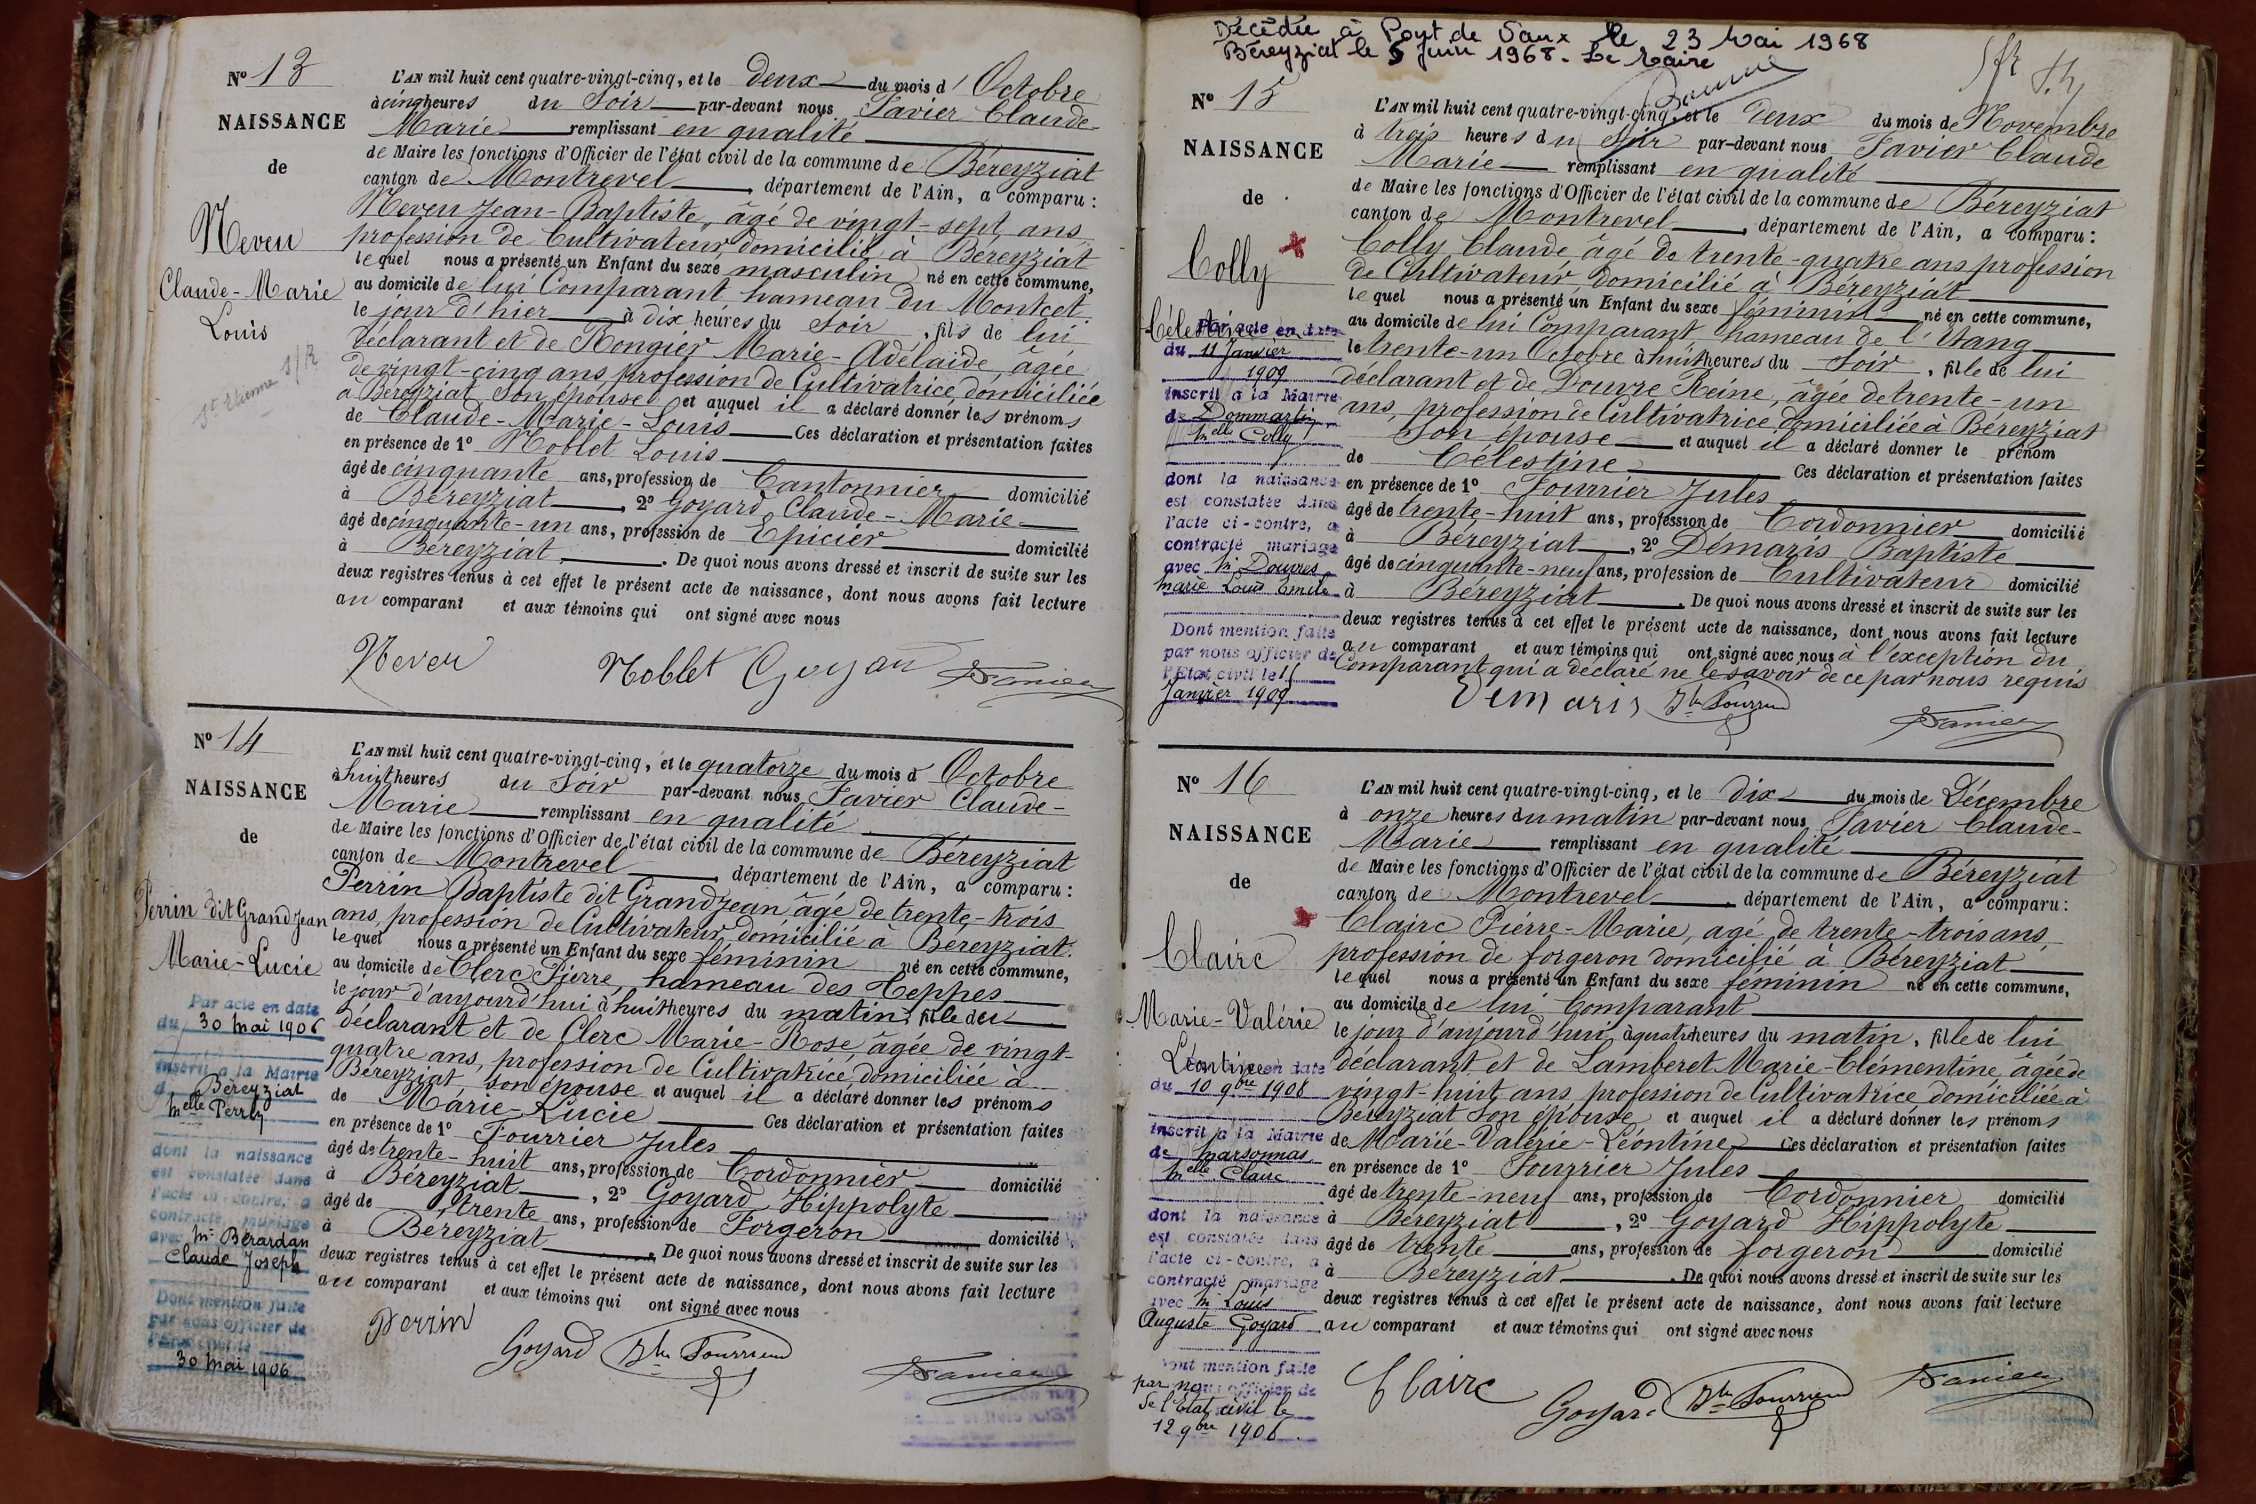 N° 13
NAISSANCE
de
Neveu
Claude-Marie
Louis
St Etienne S/R
L'AN mil huit cent quatre-vingt-cinq, et le deux du mois d'Octobre
à cinq heures du soir par-devant nous Favier Claude-
Marie remplissant en qualité
de Maire les fonctions d'Officier de l'état civil de la commune de Béreyziat
canton de Montrevel, département de l'Ain, a comparu :
Neveu Jean-Baptiste, âgé de vingt-sept ans
profession de Cultivateur, domicilié à Béreyziat
lequel nous a présenté un Enfant du sexe masculin né en cette commune,
au domicile de lui Comparant hameau du Montcet
le jour d'hier à dix heures du soir, fils de lui
déclarant et de Rongier Marie-Adélaïde, âgée
de vingt-cinq ans, profession de Cultivatrice, domiciliée
à Béreyziat Son épouse et auquel il a déclaré donner les prénoms
de Claude-Marie-Louis Ces déclaration et présentation faites
en présence de 1° Noblet Louis
âgé de cinquante ans, profession de Cantonnier domicilié
à Béreyziat, 2° Goyard Claude-Marie
âgé de cinquante-un ans, profession de Epicier domicilié
à Béreyziat. De quoi nous avons dressé et inscrit de suite sur les
deux registres tenus à cet effet le présent acte de naissance, dont nous avons fait lecture
au comparant et aux témoins qui ont signé avec nous
Neveu Noblet Goyard Favier
N° 14
NAISSANCE
de
Perrin dit Grandjean
Marie-Lucie
Par acte en date
du 30 mai 1906
inscrit à la Mairie
d Béreyziat
Melle Perrin
dont la naissance
est constatée dans
l'acte ci-contre, a
contracté mariage
avec Mr Bérardan
Claude Joseph
Dont mention faite
par nous officier de
l'Etat civil le
30 mai 1906
L'AN mil huit cent quatre-vingt-cinq, et le quatorze du mois d'Octobre
à huit heures du soir par-devant nous Favier Claude-
Marie remplissant en qualité
de Maire les fonctions d'Officier de l'état civil de la commune de Béreyziat
canton de Montrevel, département de l'Ain, a comparu :
Perrin Baptiste dit Grandjean âgé de trente-trois
ans, profession de Cultivateur, domicilié à Béreyziat.
lequel nous a présenté un Enfant du sexe féminin né en cette commune,
au domicile de Clerc Pierre, hameau des Teppes
le jour d'aujourd'hui à huit heures du matin, fille du
déclarant et de Clerc Marie-Rose âgée de vingt-
quatre ans, profession de Cultivatrice, domiciliée à
Béreyziat, son épouse et auquel il a déclaré donner les prénoms
de Marie-Lucie Ces déclaration et présentation faites
en présence de 1° Fourrier Jules
âgé de trente-huit ans, profession de Cordonnier domicilié
à Béreyziat, 2° Goyard Hippolyte
âgé de trente ans, profession de Forgeron
à Béreyziat domicilié. De quoi nous avons dressé et inscrit de suite sur les
deux registres tenus à cet effet le présent acte de naissance, dont nous avons fait lecture
au comparant et aux témoins qui ont signé avec nous
Perrin Goyard Jles Fourrier Favier
Décédée à Pont de Vaux le 23 Mai 1968
Béreyziat le 5 Juin 1968. Le Maire
N° 15
NAISSANCE
de
Colly
Célestine
Par acte en date
du 11 Janvier
1909
inscrit à la Mairie
de Dommartin
Melle Colly
dont la naissance
est constatée dans
l'acte ci-contre, a
contracté mariage
avec Mr Douvres
Marie Louis Emile
Dont mention faite
par nous officier de
l'Etat civil le 11
Janvier 1909
L'AN mil huit cent quatre-vingt-cinq, et le deux du mois de Novembre
à trois heures du soir par-devant nous Favier Claude
Marie remplissant en qualité
de Maire les fonctions d'Officier de l'état civil de la commune de Béreyziat
canton de Montrevel, département de l'Ain, a comparu :
Colly Claude, âgé de trente-quatre ans profession
de Cultivateur, domicilié à Béreyziat
lequel nous a présenté un Enfant du sexe féminin né en cette commune,
au domicile de lui Comparant, hameau de l'Etang
le trente-un Octobre à huit heures du soir, fille de lui
déclarant et de Douvre Reine, âgée de trente-un
ans, profession de Cultivatrice, domiciliée à Béreyziat
Son épouse et auquel il a déclaré donner le prénom
de Célestine Ces déclaration et présentation faites
en présence de 1° Fourrier Jules
âgé de trente-huit ans, profession de Cordonnier domicilié
à Béreyziat, 2° Démaris Baptiste
âgé de cinquante-neuf ans, profession de Cultivateur domicilié
à Béreyziat. De quoi nous avons dressé et inscrit de suite sur les
deux registres tenus à cet effet le présent acte de naissance, dont nous avons fait lecture
au comparant et aux témoins qui ont signé avec nous à l'exception du
Comparant qui a déclaré ne le savoir de ce par nous requis
Demaris Jles Fourrier Favier
N° 16
NAISSANCE
de
Claire
Marie-Valérie
Léontine
en date
du 10 9bre 1906
inscrit à la Mairie
de Marsonnas
Melle Claire
dont la naissance
est constatée dans
l'acte ci-contre, a
contracté mariage
avec Mr Louis
Auguste Goyard
Dont mention faite
par nous officier de
de l'Etat civil le
12 9bre 1906.
L'AN mil huit cent quatre-vingt-cinq, et le dix du mois de Décembre
à onze heures du matin par-devant nous Favier Claude-
Marie remplissant en qualité
de Maire les fonctions d'Officier de l'état civil de la commune de Béreyziat
canton de Montrevel, département de l'Ain, a comparu :
Claire Pierre-Marie, agé de trente-trois ans,
profession de forgeron domicilié à Béreyziat
lequel nous a présenté un Enfant du sexe féminin né en cette commune,
au domicile de lui Comparant
le jour d'aujourd'hui à quatre heures du matin, fille de lui
déclarant et de Lamberet Marie-Clémentine âgée de
vingt-huit ans, profession de Cultivatrice domiciliée à
Béreyziat Son épouse et auquel il a déclaré donner les prénoms
de Marie-Valérie-Léontine Ces déclaration et présentation faites
en présence de 1° Fourrier Jules
âgé de trente-neuf ans, profession de Cordonnier domicilié
à Béreyziat, 2° Goyard Hippolyte
âgé de trente ans, profession de forgeron domicilié
à Béreyziat. De quoi nous avons dressé et inscrit de suite sur les
deux registres tenus à cet effet le présent acte de naissance, dont nous avons fait lecture
au comparant et aux témoins qui ont signé avec nous
Claire Goyard Jles Fourrier Favier